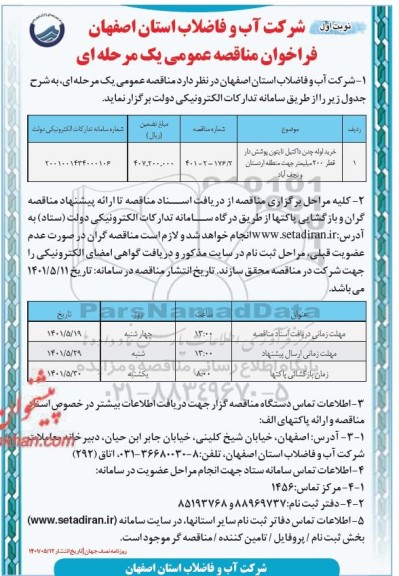 نوبت اول
شرکت آب و فاضلاب استان اصفهان
فراخوان مناقصه عمومی یک مرحله ای
۱- شرکت آب و فاضلاب استان اصفهان در نظر دارد مناقصه عمومی یک مرحله ای، به شرح
جدول زیر را از طریق سامانه تدارکات الکترونیکی دولت برگزار نماید.
ردیف موضوع شماره مناقصه مبلغ تضمین (ریال) شماره سامانه تدارکات الکترونیکی دولت
۱ خرید لوله چدن داکتیل تایتون پوشش دار قطر ۲۰۰ میلیمتر جهت منطقه اردستان و نجف آباد ۴۰۱-۲-۱۷۶/۲ ۴۰۷,۲۰۰,۰۰۰ ۲۰۰۱۰۰۱۴۳۴۰۰۰۱۰۶
۲- کلیه مراحل برگزاری مناقصه از دریافت اسناد مناقصه تا ارائه پیشنهاد مناقصه
گران و بازگشایی پاکتها از طریق درگاه سامانه تدارکات الکترونیکی دولت (ستاد) به
آدرس: www.setadiran.ir انجام خواهد شد و لازم است مناقصه گران در صورت عدم
عضویت قبلی، مراحل ثبت نام در سایت مذکور و دریافت گواهی امضای الکترونیکی را
جهت شرکت در مناقصه محقق سازند. تاریخ انتشار مناقصه در سامانه: تاریخ ۱۴۰۱/۵/۱۱
می باشد.
عنوان ساعت روز تاریخ
مهلت زمانی دریافت اسناد مناقصه ۱۳:۰۰ چهارشنبه ۱۴۰۱/۵/۱۹
مهلت زمانی ارسال پیشنهاد ۱۳:۰۰ شنبه ۱۴۰۱/۵/۲۹
زمان بازگشائی پاکتها ۸:۰۰ یکشنبه ۱۴۰۱/۵/۳۰
ParsNamadData
پایگاه اطلاع رسانی مناقصه و مزایده
۰۲۱-۸۸۳۴۹۶۷۰-۵
۳- اطلاعات تماس دستگاه مناقصه گزار جهت دریافت اطلاعات بیشتر در خصوص اسناد
مناقصه و ارائه پاکتهای الف:
۳-۱- آدرس: اصفهان، خیابان شیخ کلینی، خیابان جابر ابن حیان، دبیرخانه معاملات
شرکت آب و فاضلاب استان اصفهان، تلفن: ۸-۳۶۶۸۰۰۳۰-۰۳۱، اتاق (۲۹۲)
۴- اطلاعات تماس سامانه ستاد جهت انجام مراحل عضویت در سامانه:
۴-۱- مرکز تماس: ۱۴۵۶
۴-۲- دفتر ثبت نام: ۸۸۹۶۹۷۳۷ و ۸۵۱۹۳۷۶۸
۵- اطلاعات تماس دفاتر ثبت نام سایر استانها، در سایت سامانه (www.setadiran.ir)
بخش ثبت نام / پروفایل / تامین کننده / مناقصه گر موجود است.
روزنامه نصف جهان | تاریخ انتشار ۱۴۰۱/۰۵/۱۲
شرکت آب و فاضلاب استان اصفهان